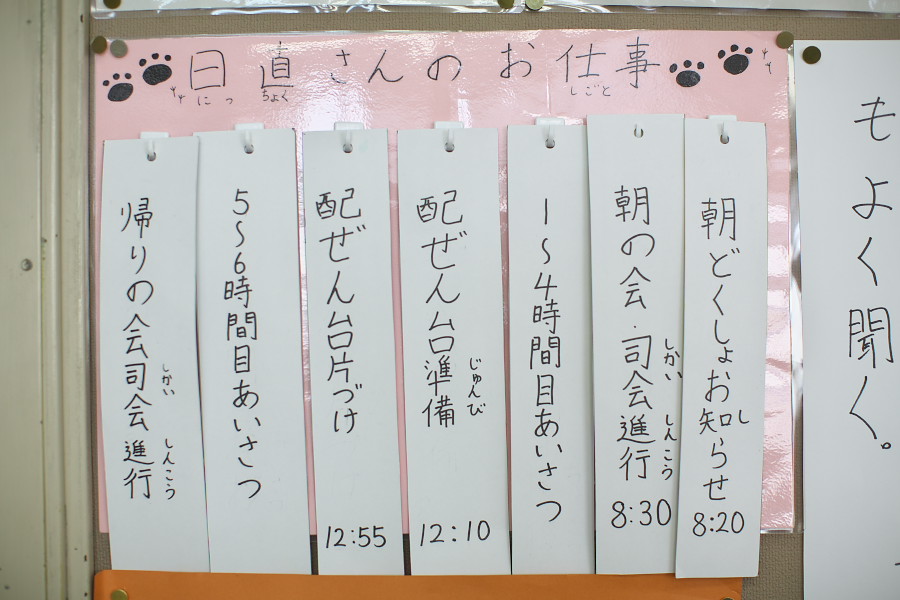 日直さんのお仕事
にっ ちょく しごと
朝どくしょお知らせ
し
8:20
朝の会・司会進行
しかい しんこう
8:30
1～4時間目あいさつ
配ぜん台準備
じゅんび
12:10
配ぜん台片づけ
12:55
5～6時間目あいさつ
帰りの会司会進行
しかい しんこう
もよく聞く。